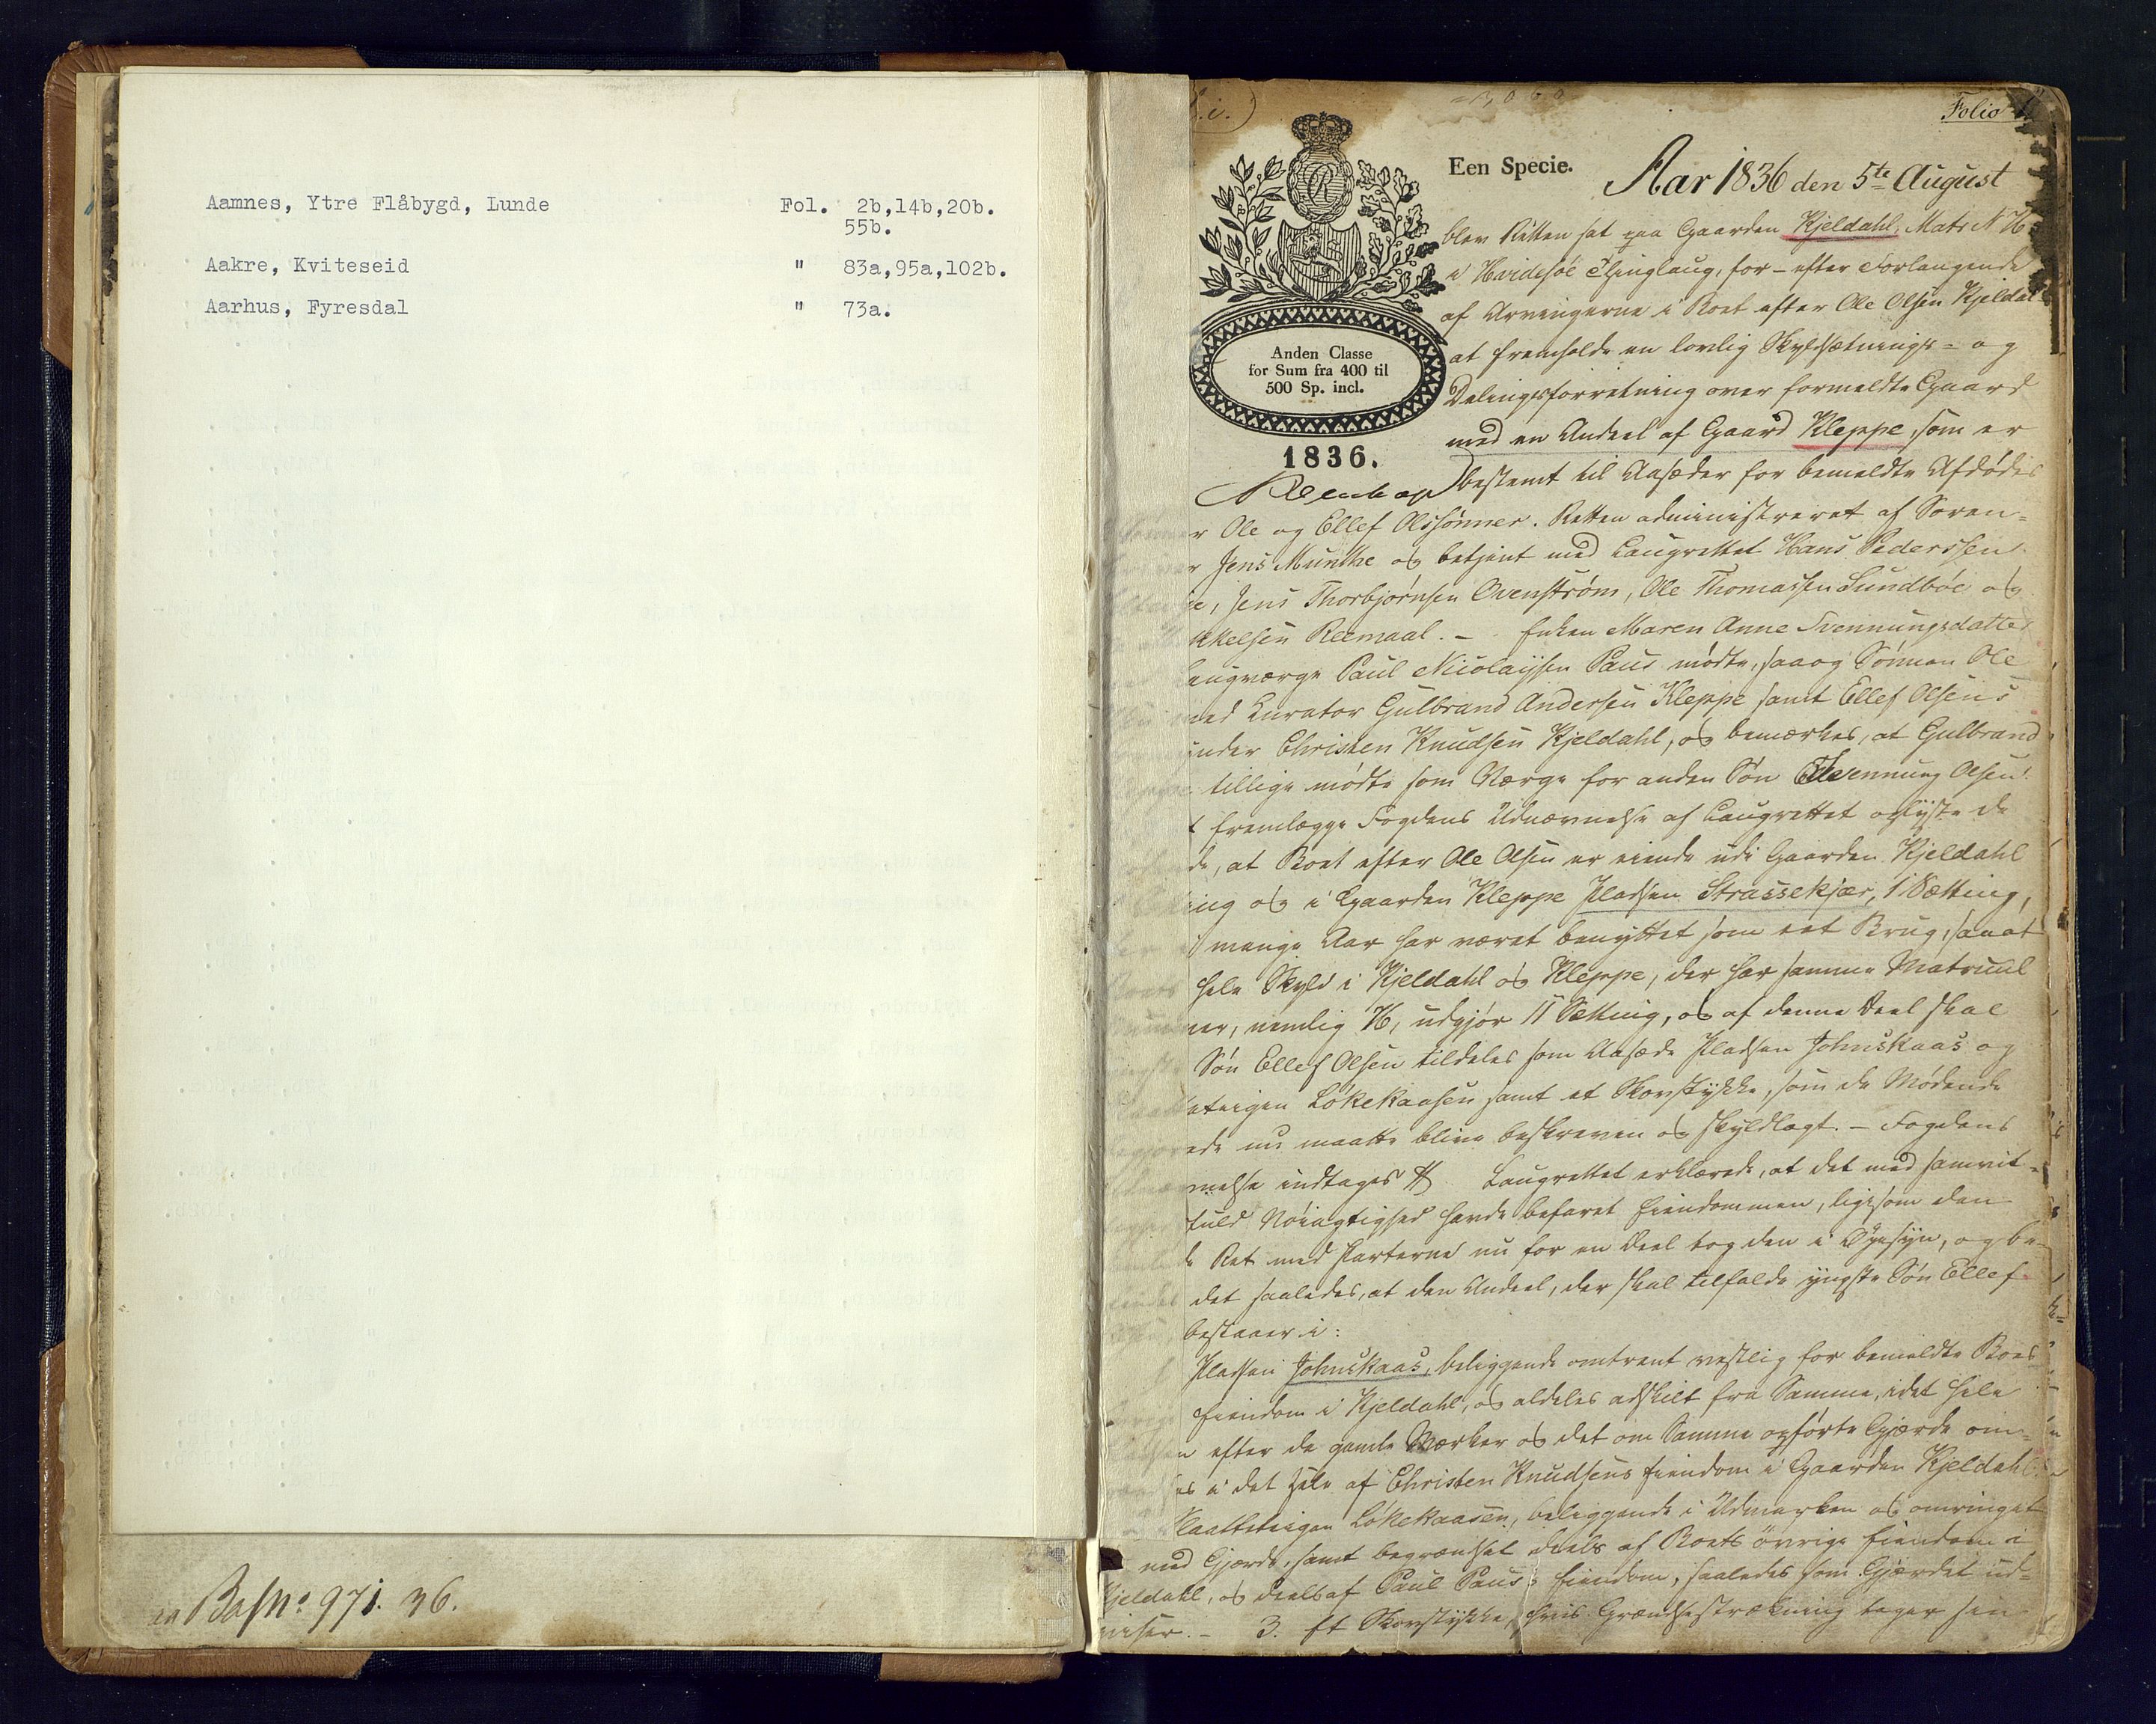 Aamnes, Ytre Flåbygd, Lunde Fol. 2b,14b,20b.
55b.
Aakre, Kviteseid " 83a,95a,102b.
Aarhus, Fyresdal " 73a.
Bas No 971. 36.
Folio 1
Een Specie.
Anden Classe
for Sum fra 400 til
500 Sp. incl.
1836.
Aar 1836 den 5te August
blev Retten sat paa Gaarden Kjeldahl, Matr N 76
i Hvidesøe Thinglaug, for - efter Forlangende
af Arvingerne i Boet efter Ole Olsen Kjeldal
at fremholde en lovlig Skyldsætnings- og
Delingsforretning over formeldte Gaard
med en Andeel af Gaard Kleppe, som er
bestemt til Aasæder for bemeldte Afdødes
r Ole og Ellef Olssønner. Retten administreret af Soren-
r Jens Munthe og betjent med Laugrettet Hans Pederssen
e, Jens Thorbjørnsen Ovenstrøm, Ole Thomassen Sundbøe og
kkelsen Reemaal. - Enken Maren Anne Svennungsdatter
Laugværge Paul Nicolaysen Paus mødte, saaog Sønnen Ole
med Curator Gulbrand Andersen Kleppe samt Ellef Olsens
inder Christen Knudsen Kjeldahl, og bemærkes, at Gulbrand
tillige mødte som Værge for anden Søn Svennung Olsen.
t fremlægge Fogdens Udnævnelse af Laugrettet oplyste de
de, at Boet efter Ole Olsen er eiende udi Gaarden Kjeldahl
ing og i Gaarden Kleppe Pladsen Strassekjær, 1 Sætting,
i mange Aar har været benyttet som eet Brug, saa at
hele Skyld i Kjeldahl og Kleppe, der har samme Matricul
mer, nemlig 76, udgjør 11 Sætting, og af denne Deel skal
Søn Ellef Olsen tildeles som Aasæde Pladsen Johnskaas og
teigen Løkekaasen samt et Skovstykke, som de Mødende
rede nu maatte blive beskreven og skyldlagt. - Fogdens
nelse indtages # Laugrettet erklærede, at det med samvit-
fuld Nøiagtighed havde befaret Eiendommen, ligesom den
de Ret med Parterne nu for en Deel tog den i Øyesyn, og be-
det saaledes, at den Andeel, der skal tilfalde yngste Søn Ellef
bestaaer i:
Pladsen Johnskaas, beliggende omtrent vestlig for bemeldte Boes
Eiendom i Kjeldahl, og aldeles adskilt fra Samme, idet hele
n efter de gamle Mærker og det om Samme opførte Gjærde om-
es i det hele af Christen Knudsens Eiendom i Gaarden Kjeldahl
Slaatteteigen Løkekaasen, beliggende i Udmarken og omringet
med Gjærde, samt begrændset deels af Boets øvrige Eiendom i
Kjeldahl, og deels af Paul Paus's Eiendom, saaledes som Gjærdet ud-
viser. - 3. Et Skovstykke, hvis Grændsestrækning tager sin